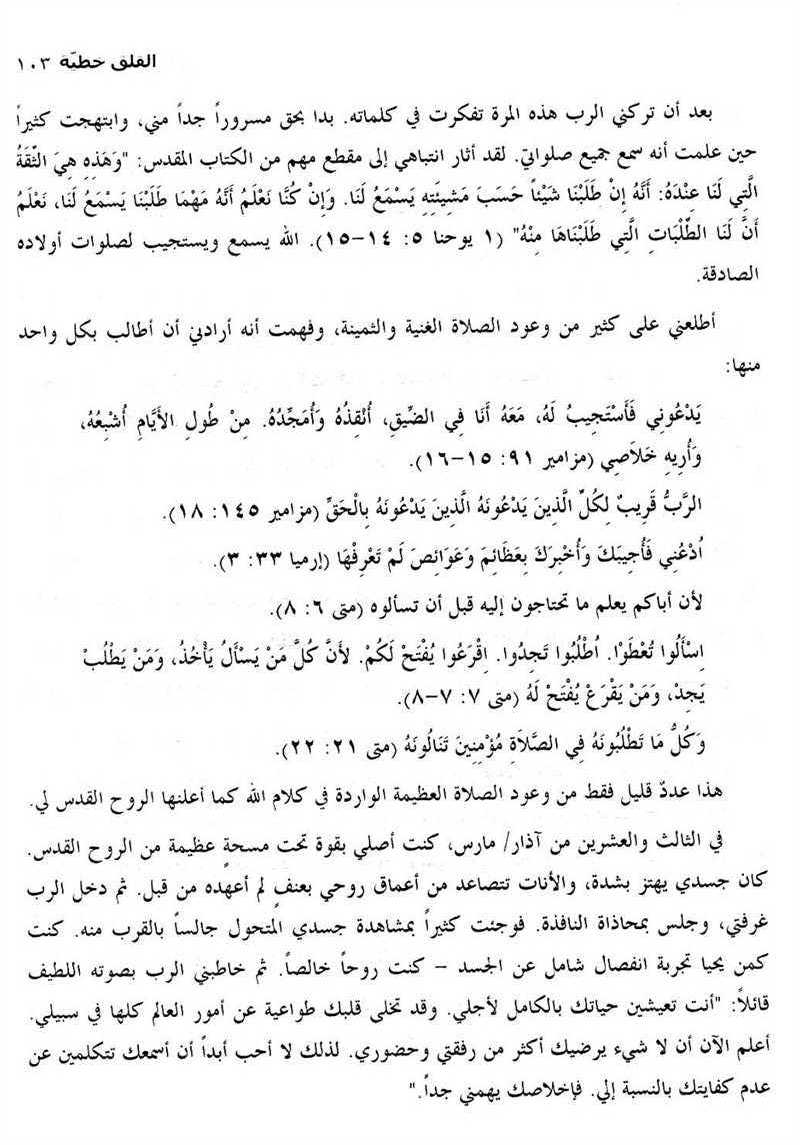 القلق خطيّة ١٠٣
بعد أن تركني الرب هذه المرة تفكرت في كلماته. بدا بحق مسروراً جداً مني، وابتهجت كثيراً
حين علمت أنه سمع جميع صلواتي. لقد أثار انتباهي إلى مقطع مهم من الكتاب المقدس: "وَهَذِهِ هِيَ الثِّقَةُ
الَّتِي لَنَا عِنْدَهُ: أَنَّهُ إِنْ طَلَبْنَا شَيْئاً حَسَبَ مَشِيئَتِهِ يَسْمَعُ لَنَا. وَإِنْ كُنَّا نَعْلَمُ أَنَّهُ مَهْمَا طَلَبْنَا يَسْمَعُ لَنَا، نَعْلَمُ
أَنَّ لَنَا الطَّلِبَاتِ الَّتِي طَلَبْنَاهَا مِنْهُ" (١ يوحنا ٥: ١٤-١٥). الله يسمع ويستجيب لصلوات أولاده
الصادقة.
أطلعني على كثير من وعود الصلاة الغنية والثمينة، وفهمت أنه أرادني أن أطالب بكل واحد
منها:
يَدْعُونِي فَأَسْتَجِيبُ لَهُ، مَعَهُ أَنَا فِي الضِّيقِ، أُنْقِذُهُ وَأُمَجِّدُهُ. مِنْ طُولِ الأَيَّامِ أُشْبِعُهُ،
وَأُرِيهِ خَلَاصِي (مزامير ٩١: ١٥-١٦).
الرَّبُّ قَرِيبٌ لِكُلِّ الَّذِينَ يَدْعُونَهُ الَّذِينَ يَدْعُونَهُ بِالْحَقِّ (مزامير ١٤٥: ١٨).
اُدْعُنِي فَأُجِيبَكَ وَأُخْبِرَكَ بِعَظَائِمَ وَعَوَائِصَ لَمْ تَعْرِفْهَا (إرميا ٣٣: ٣).
لأن أباكم يعلم ما تحتاجون إليه قبل أن تسألوه (متى ٦: ٨).
اِسْأَلُوا تُعْطَوْا. اُطْلُبُوا تَجِدُوا. اِقْرَعُوا يُفْتَحْ لَكُمْ. لأَنَّ كُلَّ مَنْ يَسْأَلُ يَأْخُذُ، وَمَنْ يَطْلُبْ
يَجِدْ، وَمَنْ يَقْرَعْ يُفْتَحْ لَهُ (متى ٧: ٧-٨).
وَكُلُّ مَا تَطْلُبُونَهُ فِي الصَّلَاةِ مُؤْمِنِينَ تَنَالُونَهُ (متى ٢١: ٢٢).
هذا عددٌ قليل فقط من وعود الصلاة العظيمة الواردة في كلام الله كما أعلنها الروح القدس لي.
في الثالث والعشرين من آذار/ مارس، كنت أصلي بقوة تحت مسحةٍ عظيمة من الروح القدس.
كان جسدي يهتز بشدة، والأنات تتصاعد من أعماق روحي بعنفٍ لم أعهده من قبل. ثم دخل الرب
غرفتي، وجلس بمحاذاة النافذة. فوجئت كثيراً بمشاهدة جسدي المتحول جالساً بالقرب منه. كنت
كمن يحيا تجربة انفصال شامل عن الجسد – كنت روحاً خالصاً. ثم خاطبني الرب بصوته اللطيف
قائلاً: "أنت تعيشين حياتك بالكامل لأجلي. وقد تخلى قلبك طواعية عن أمور العالم كلها في سبيلي.
أعلم الآن أن لا شيء يرضيك أكثر من رفقتي وحضوري. لذلك لا أحب أبداً أن أسمعك تتكلمين عن
عدم كفايتك بالنسبة إلي. فإخلاصك يهمني جداً."